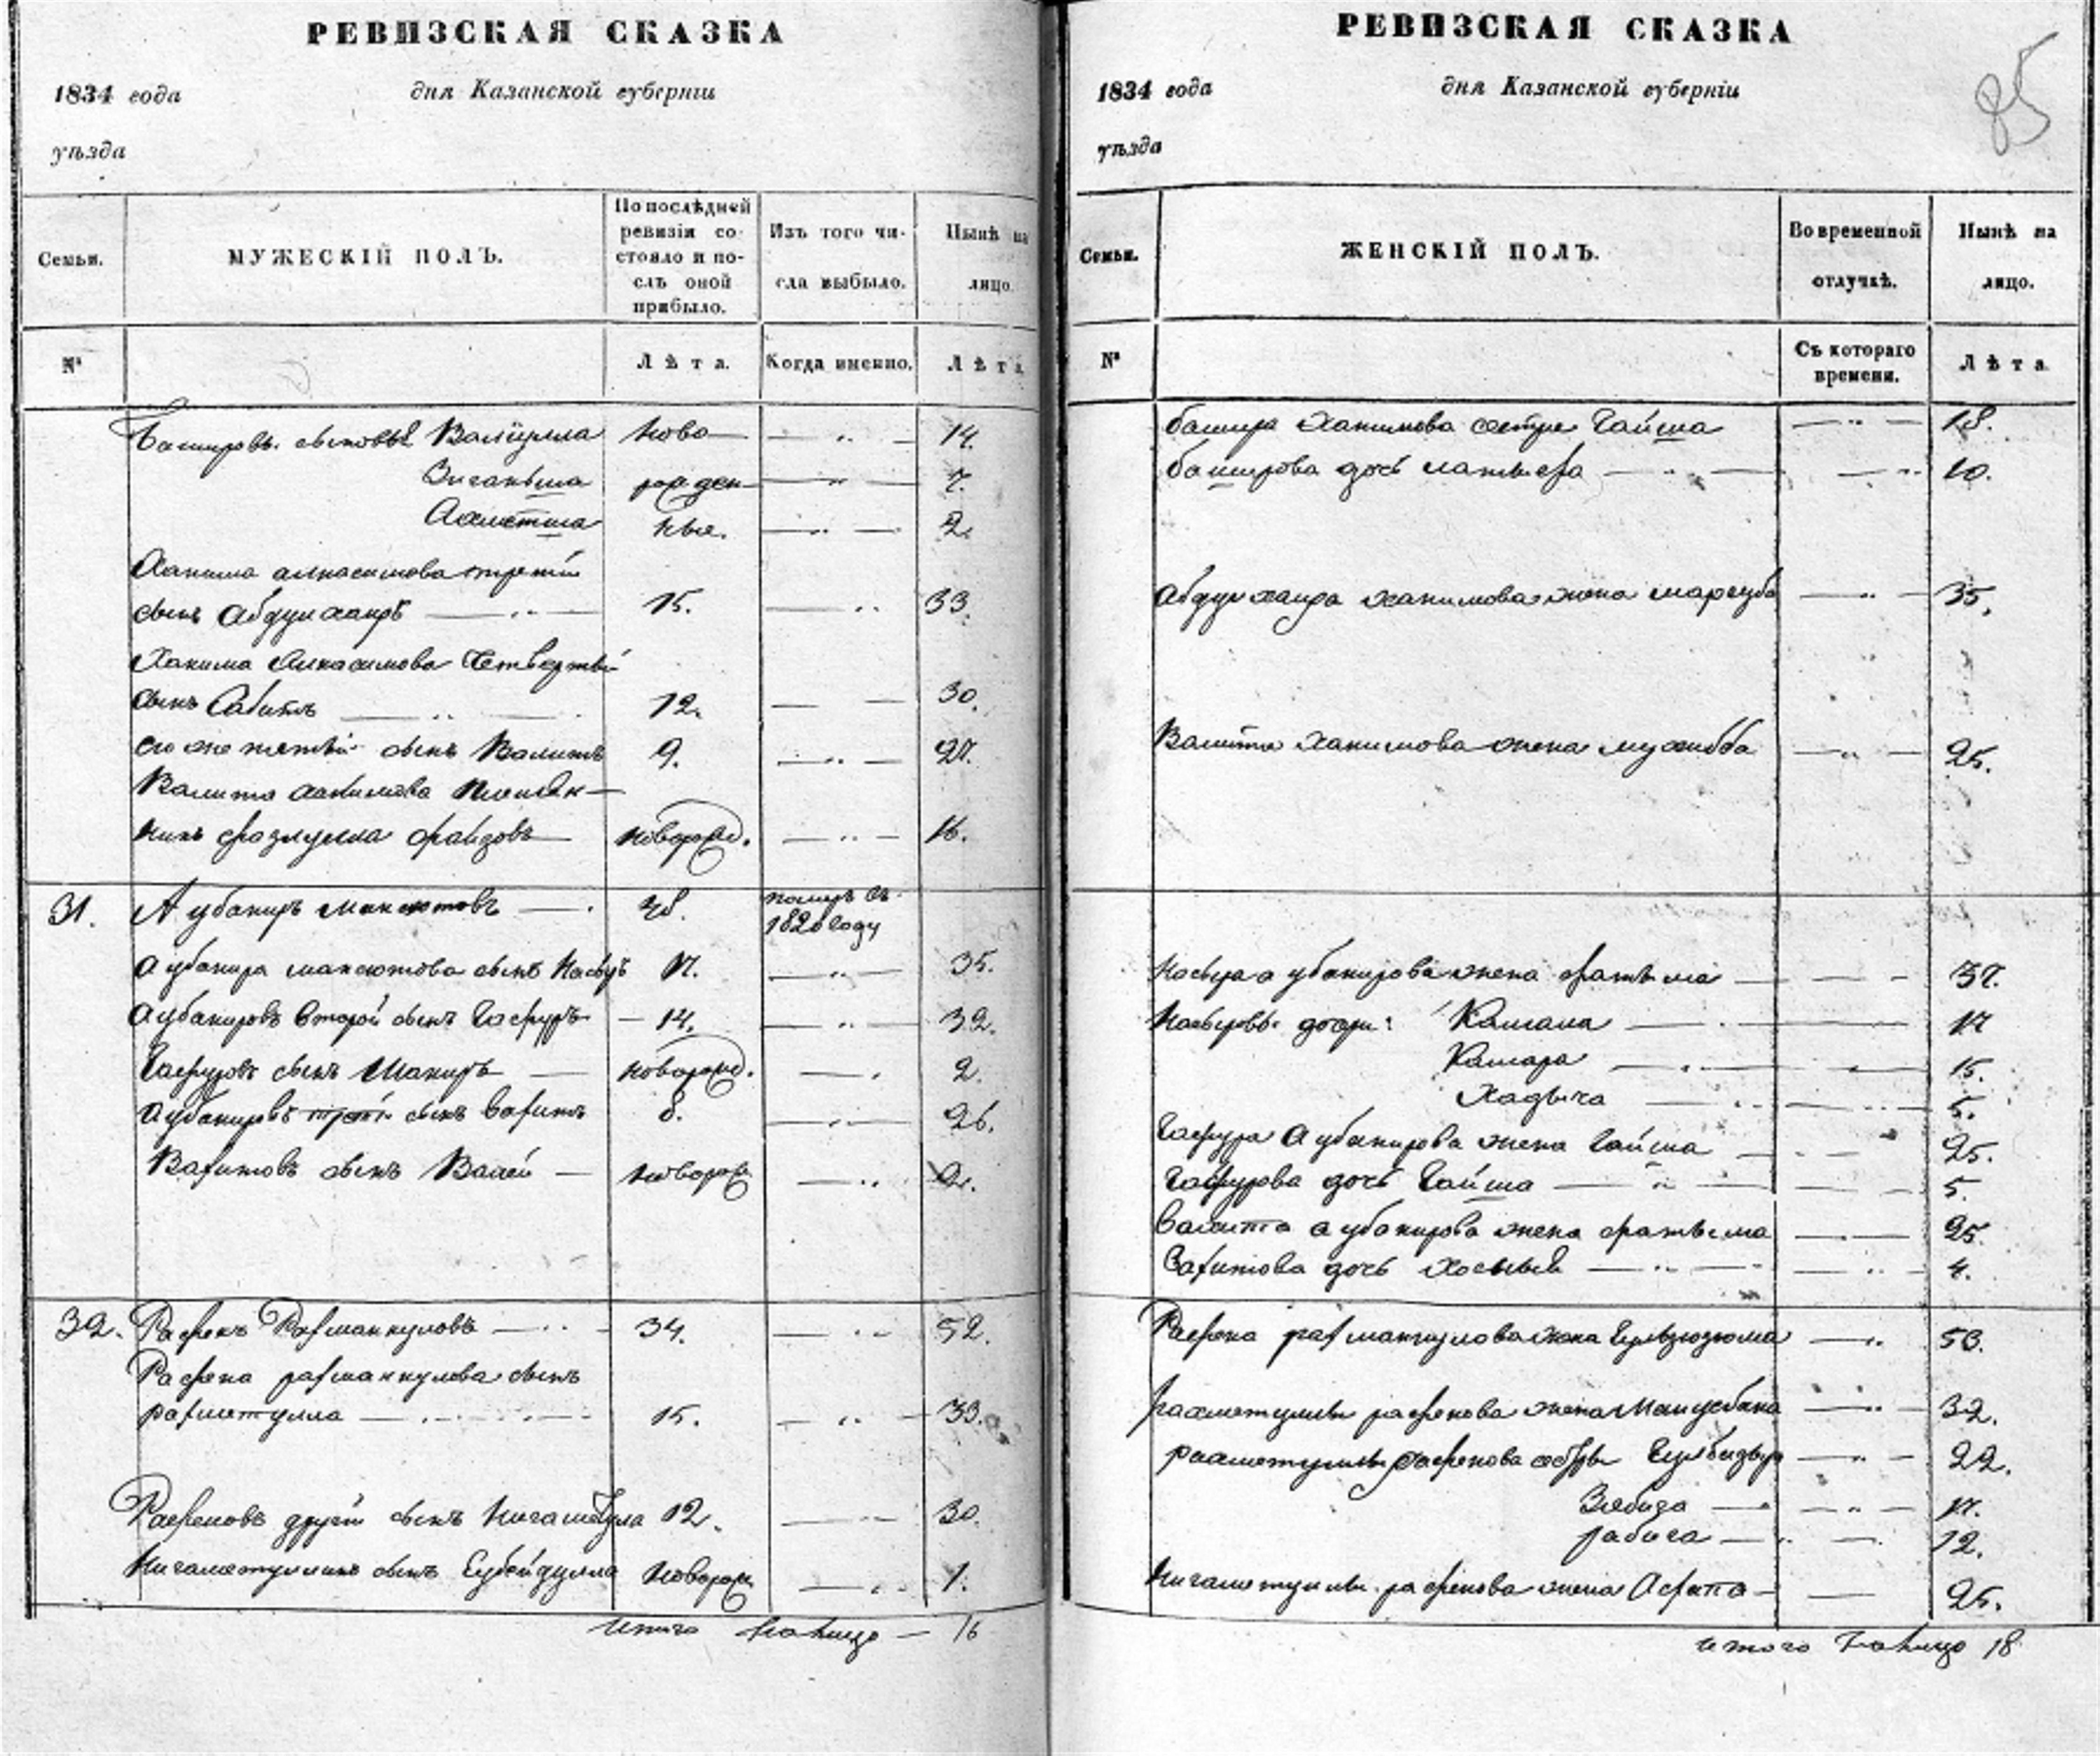 РЕВИЗСКАЯ СКАЗКА
1834 года дня Казанской губерніи
уѣзда
Семьи. МУЖЕСКІЙ ПОЛЪ. По послѣдней ревизіи состояло и послѣ оной прибыло. Изъ того числа выбыло. Нынѣ на лицо.
№ Лѣта. Когда именно. Лѣта
Башировы сыновья Валиулла ново 14.
Зиганьша рожден 7.
Ахметша ные. 2.
Хакима алкасимова третій
сынъ Абдулхаиръ 15. 33.
Хакима Алкасимова Четвертый
сынъ Сабитъ 12. 30.
его же пятый сынъ Валитъ 9. 27.
Валита хакимова племян
никъ фазлулла фаизовъ новорожд. 16.
31. Аубакиръ Максютовъ 48. померъ въ 1820 году
Аубакира максютова сынъ Насыръ 17. 35.
Аубакировъ второй сынъ Гафуръ 14. 32.
Гафуровъ сынъ Шакиръ новорожд. 2.
Аубакировъ третій сынъ Вахитъ 8. 26.
Вахитовъ сынъ Валей новорож 2.
32. Рафекъ Рахманкуловъ 34. 52.
Рафека рахманкулова сынъ
рахметулла 15. 33.
Рафековъ другій сынъ Нигаметулла 12. 30.
Нигаметуллинъ сынъ Губейдулла новорож 1.
итого налицо 16
РЕВИЗСКАЯ СКАЗКА
85
1834 года дня Казанской губерніи
уѣзда
Семьи. ЖЕНСКІЙ ПОЛЪ. Во временной отлучкѣ. Нынѣ на лицо.
№ Съ котораго времени. Лѣта
башира Хакимова сестра Гайша 18.
баширова дочь латыфа 10.
Абдулхаира хакимова жена маргуба 35.
Валита хакимова жена мухибба 25.
Насыра аубакирова жена фатыма 37.
Насыровы дочри: Камала 17
Камара 15.
Хадыча 5.
Гафура Аубакирова жена Гайша 25.
Гафурова дочь Гайша 5.
Вахита аубакирова жена фатыма 25.
Вахитова дочь 4.
Рафека рахманкулова жена Гульзюзюма 50.
рахметуллы рафекова жена 32.
рахметуллы рафекова сестры 22.
Зябида 17.
рабига 12.
Нигаметуллы рафекова жена Афита 25.
итого налицо 18